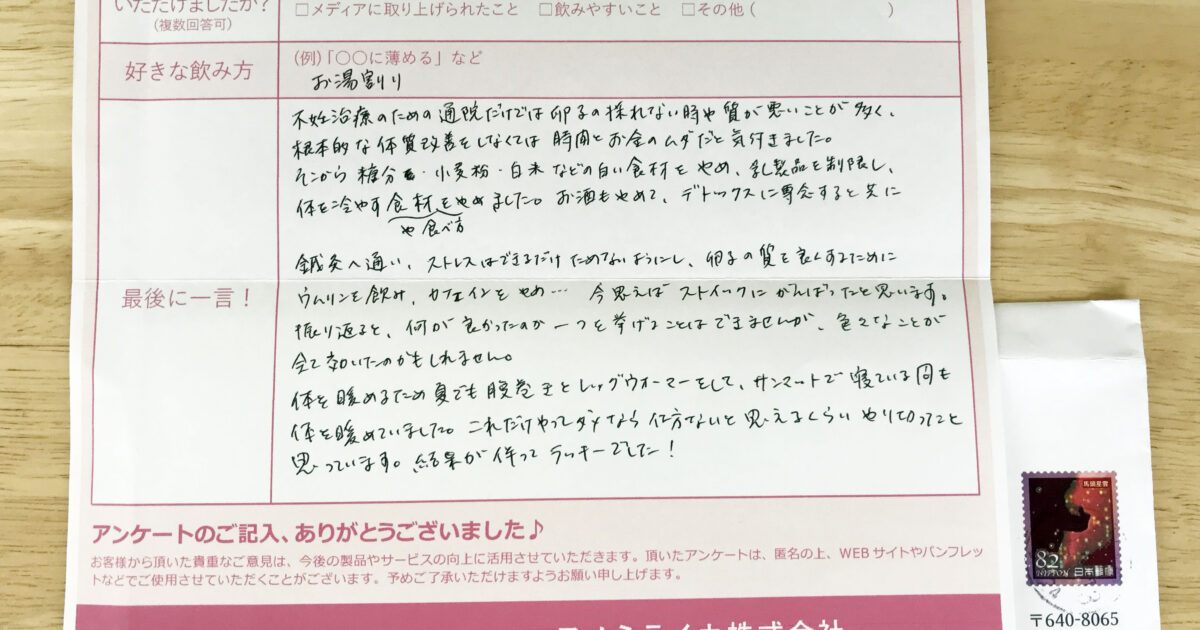 いただけましたか？
(複数回答可)
□メディアに取り上げられたこと　□飲みやすいこと　□その他（　　　　　　　）
好きな飲み方
(例)「〇〇に薄める」など
お湯割り
最後に一言！
不妊治療のための通院だけでは卵子の採れない時や質が悪いことが多く、
根本的な体質改善をしなくては時間とお金のムダだと気付きました。
そこから糖分・小麦粉・白米などの白い食材をやめ、乳製品を制限し、
体を冷やす食材をやめました。お酒もやめて、デトックスに専念すると共に
や食べ方
鍼灸へ通い、ストレスはできるだけためないようにし、卵子の質を良くするために
ウムリンを飲み、カフェインをやめ… 今思えばストイックにがんばったと思います。
振り返ると、何が良かったのか一つを挙げることはできませんが、色々なことが
全て効いたのかもしれません。
体を暖めるため夏でも腹巻きとレッグウォーマーをして、サンマットで寝ている間も
体を暖めていました。これだけやってダメなら仕方ないと思えるくらいやり切ったこと
思っています。結果が伴ってラッキーでした！
アンケートのご記入、ありがとうございました♪
お客様から頂いた貴重なご意見は、今後の製品やサービスの向上に活用させていただきます。頂いたアンケートは、匿名の上、WEBサイトやパンフレッ
トなどでご使用させていただくことがございます。予めご了承いただけますようお願い申し上げます。
馬頭星雲
82
NIPPON 日本郵便
〒640-8065